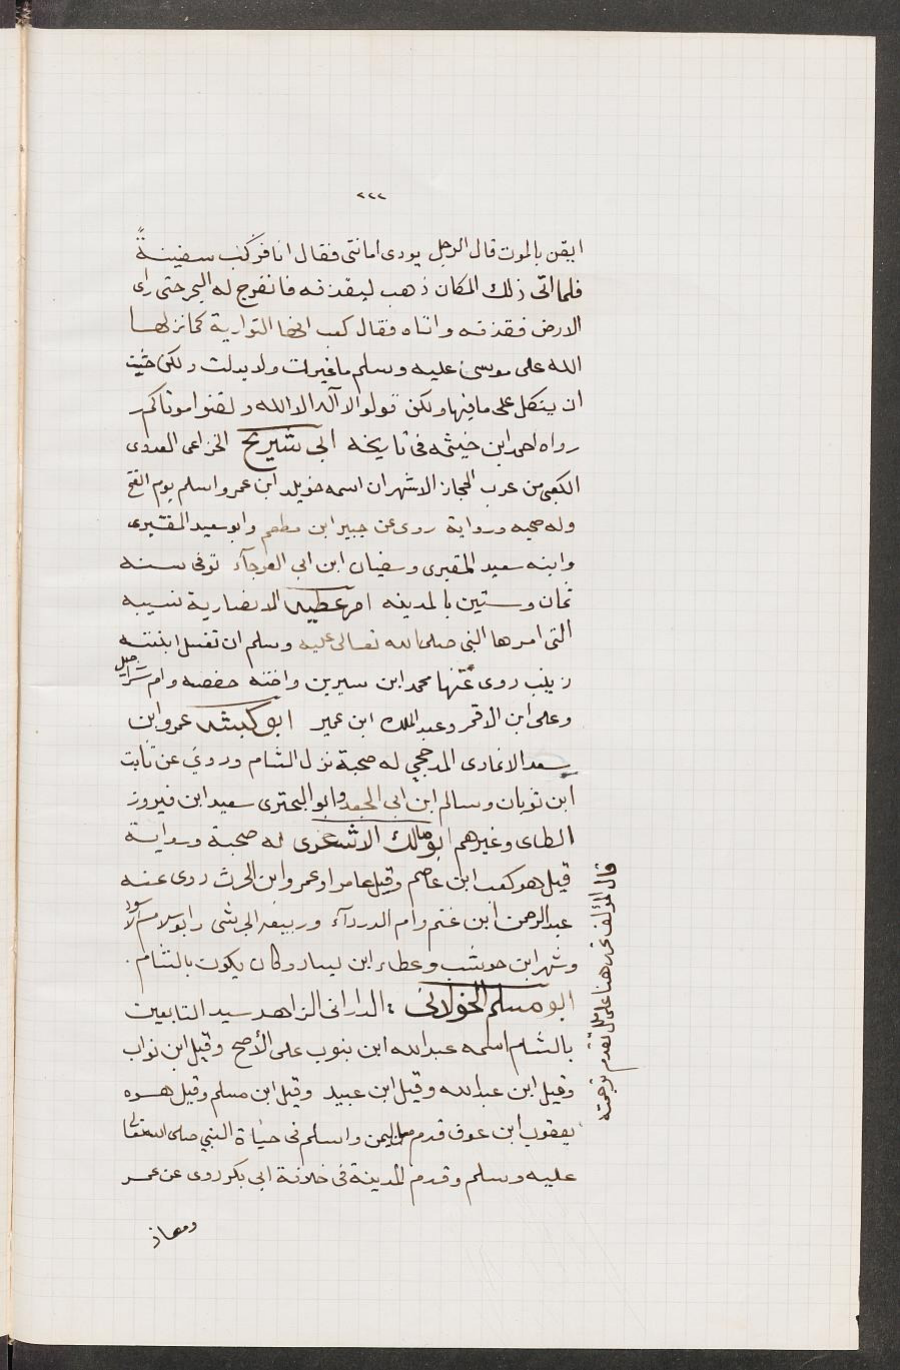 ٢٢٢
ايقن بالموت قال الرجل يودى امانتى فقال انا فركب سفينةً
فلما اتى ذلك المكان ذهب ليقذفه فانفرج له البحر حتى راى
الارض فقذفه واتاه فقال كعب انها التوارية كما نزلها
الله على موسى عليه وسلم ما غيرت ولا بدلت ولكن خشيت
ان يتكل على ما فيها ولكن قولوا لا آله الا الله ولقنوا موتاكم
رواه احمد ابن خيثمه فى تاريخه ابى شريح الخزاعى العدوى
الكعبى من عرب الحجاز الاشهر ان اسمه خويلد ابن عمرو اسلم يوم الفتح
وله صحبه ورواية روى عن جبير ابن مطعم وابو سعيد المقبرى
وابنه سعيد المقبرى وسفيان ابن ابى العوجآء توفى سنه
ثمان وستين بالمدينه ام عطيه الانصارية نسيبه
التى امرها النبى صلى الله تعالى عليه وسلم ان تغسل ابنته
زينب روى عنها محمد ابن سيرين واخته حفصه وام شراحيل
وعلى ابن الاقمر وعبد الملك ابن عمير ابو كبشه عمرو ابن
سعد الانمارى المدحجي له صحبة نزل الشام وروي عن ثابت
ابن ثوبان وسالم ابن ابى الجعد وابو البحترى سعيد ابن فيروز
الطاى وغيرهم ابو مالك الاشعرى له صحبة ورواية
قيل هو كعب ابن عاصم وقيل عامر او عمرو ابن الحرث روى عنه
عبد الرحمن ابن غنم وام الدردآء وربيعه الجرشى وابو سلام الاسود
وشهر ابن حوشب وعطاء ابن يسار وكان يكون بالشام .
ابو مسلم الخولانى الدارانى الزاهد سيد التابعين
بالشام اسمه عبد الله ابن ثوب على الأصح وقيل ابن ثواب
وقيل ابن عبد الله وقيل ابن عبيد وقيل ابن مسلم وقيل هو
يعقوب ابن عوف قدم من اليمن واسلم فى حياة النبي صلى الله تعالى
عليه وسلم وقدم المدينة فى خلافة ابى بكر روى عن عمر
ومعاذ
قال المؤلف تحرر هنا على ما تقدم ترجمته